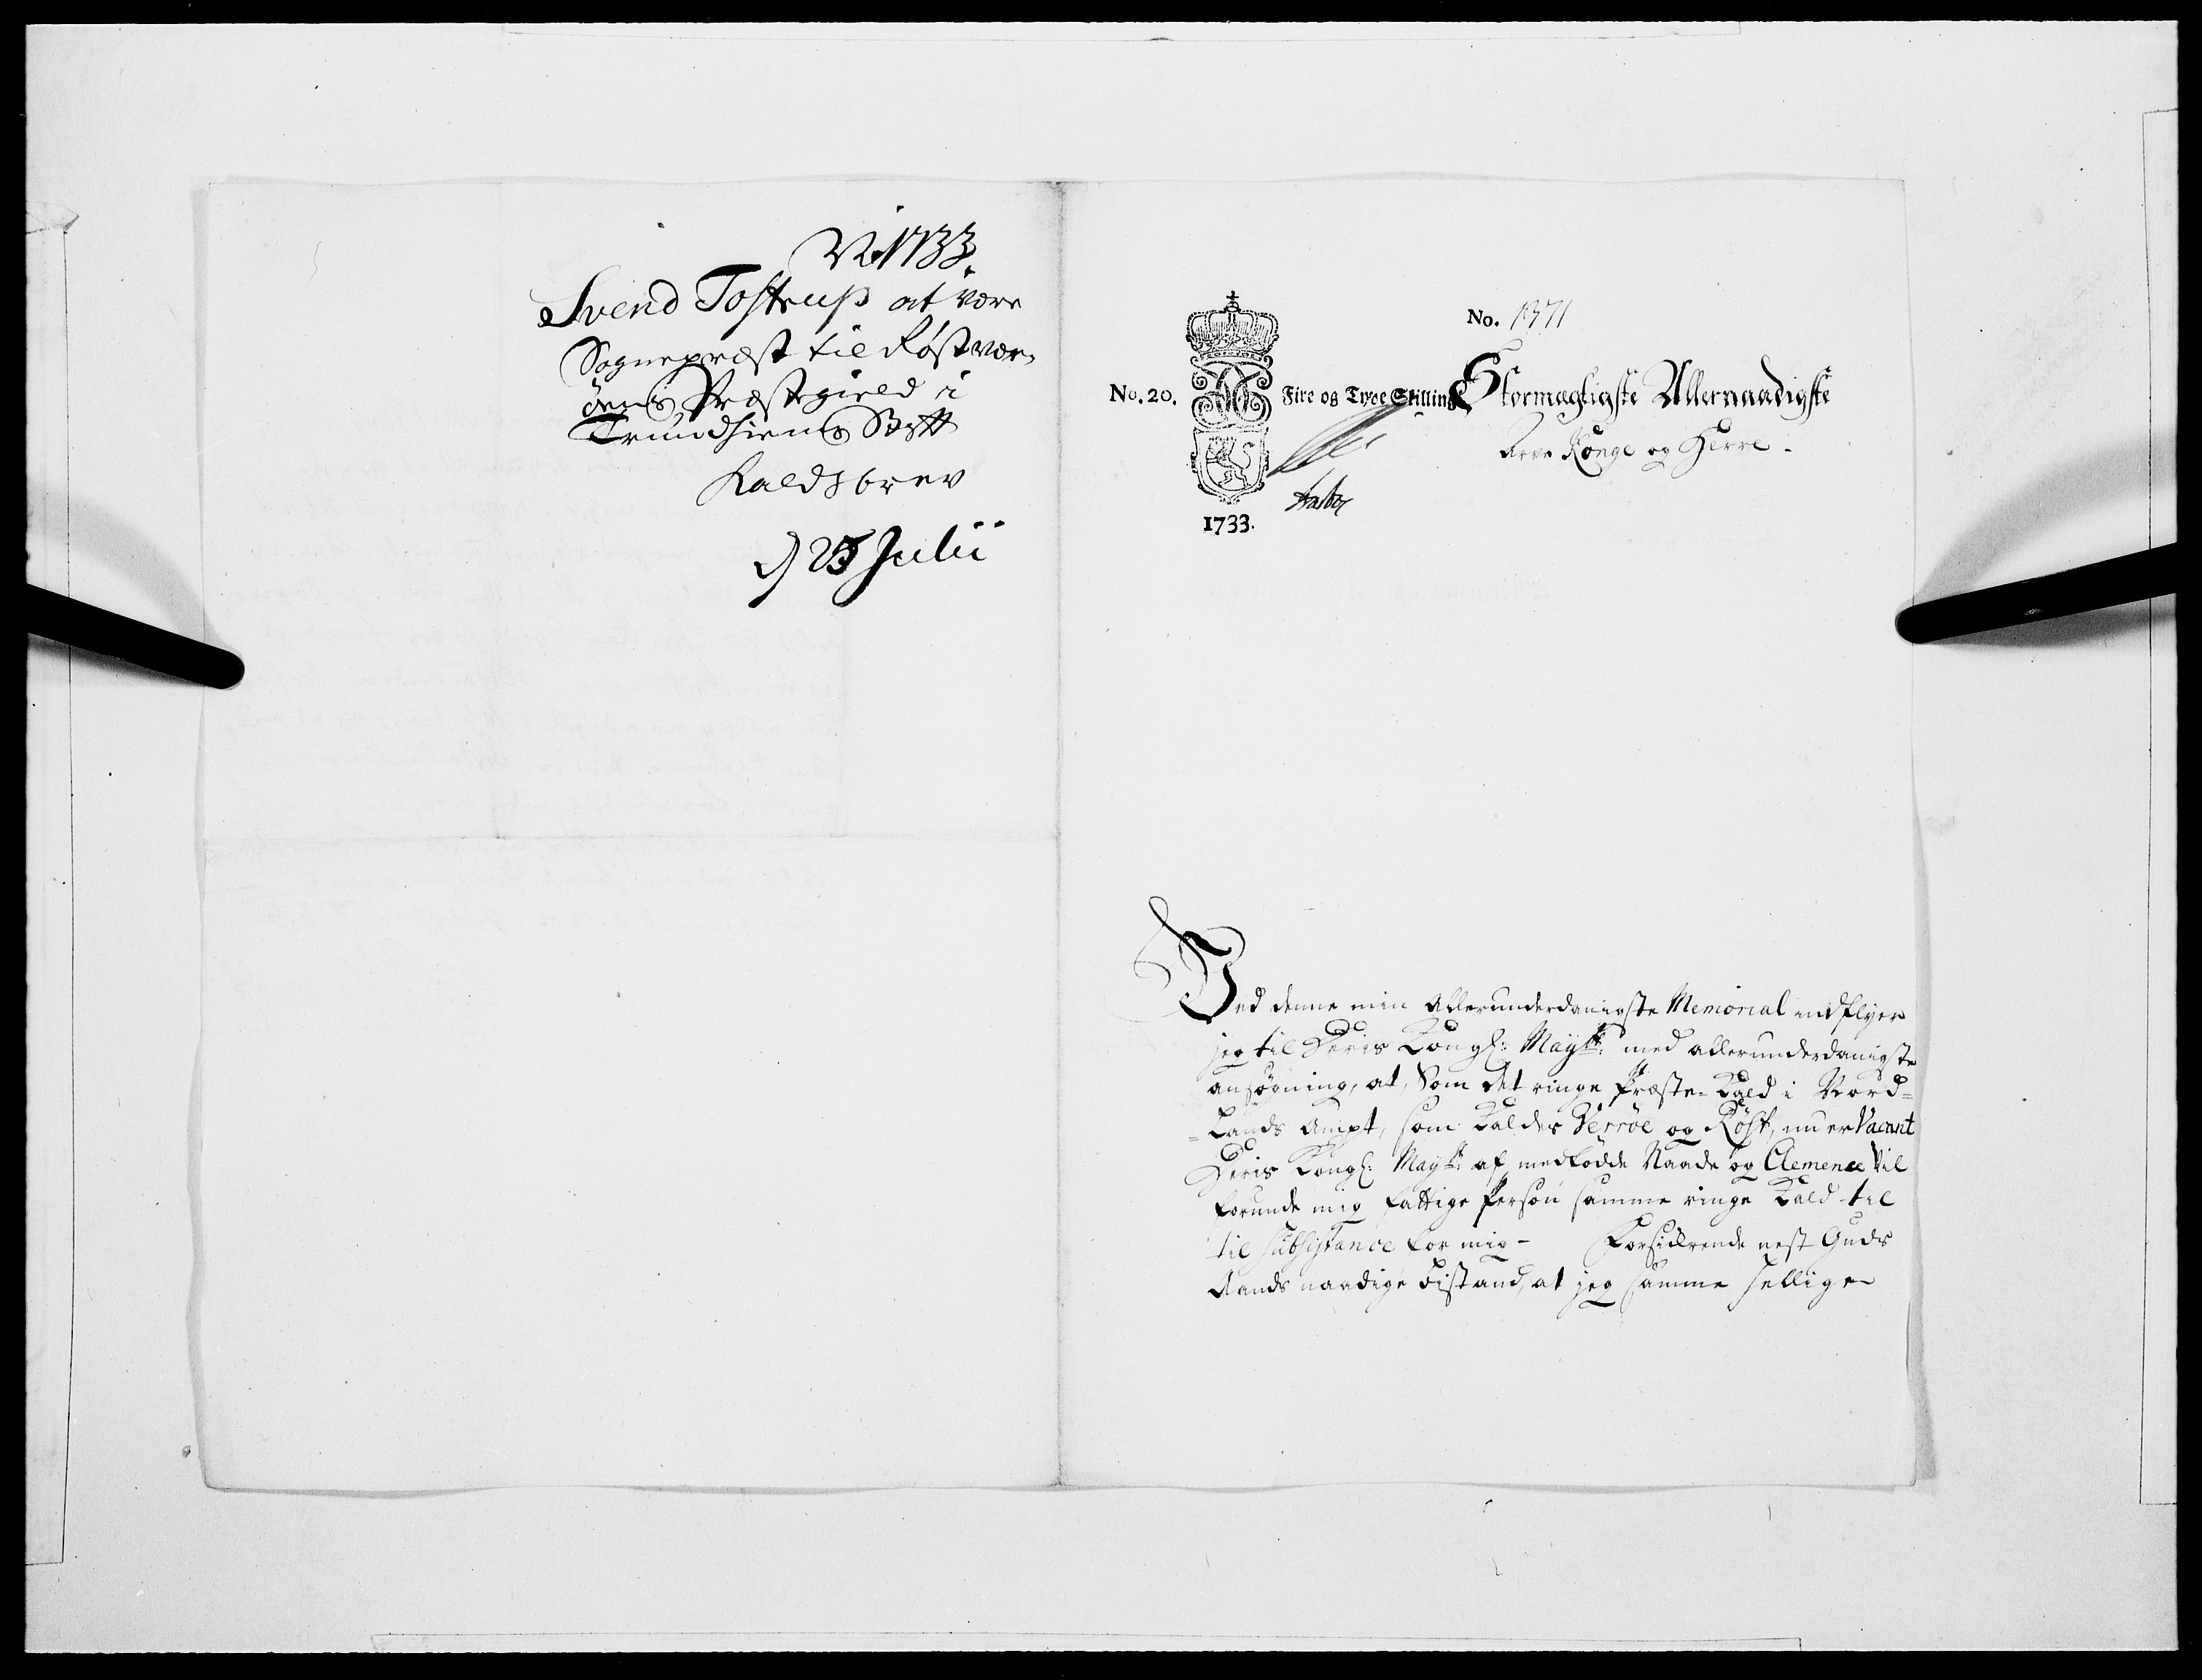 1733.
Svend Tostrup at være
Sognepræst til Røst vær-
øens Præstegield i
Trundhiems Stift
Kaldsbrev
d 25 Julii
No. 1371
No. 20. Fire og Tyve Skilling
1733.
Stormægtigste Allernaadigste
Arve Konge og Herre.
Ved denne min Allerunderdanigste Memorial indflyer
jeg til Deris Kongl: Mayst: med allerunderdanigste
ansøgning, at, Som det ringe Præste-Kald i Nord-
-Lands Ampt, som kaldes Verröe og Röst, nu er Vacant
Deris Kongl: Mayst: af medfødde Naade og Clemence vil
forunde mig fattige Person samme ringe Kald til
til subsistance for mig - Forsickrende nest Guds
Aands naadige bistand, at jeg samme hellige